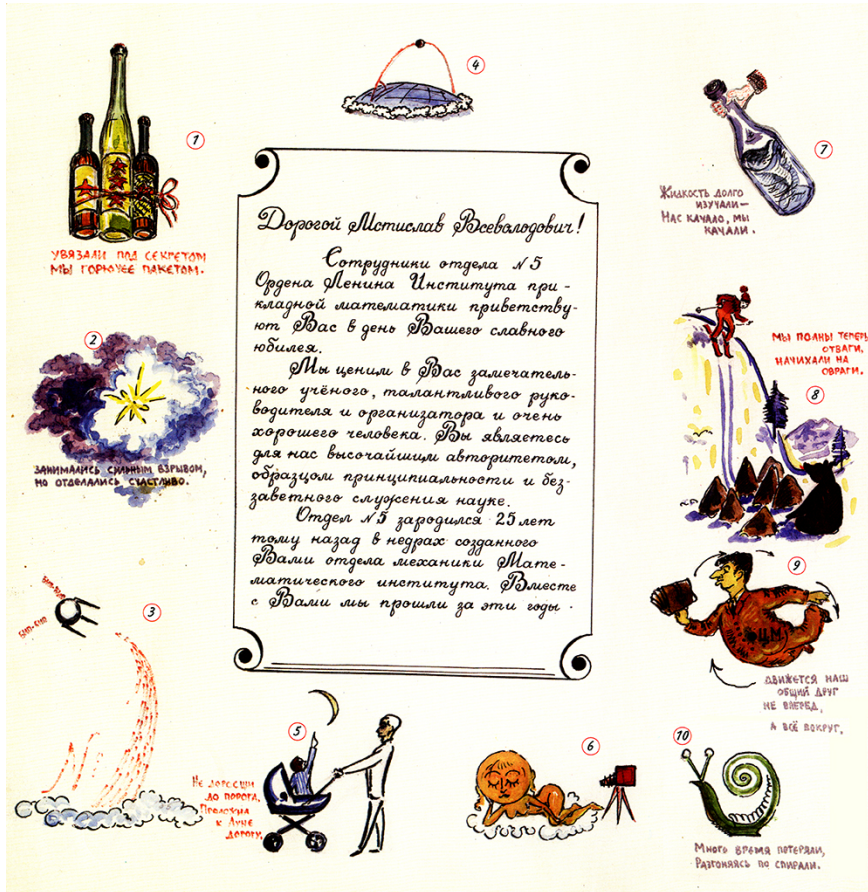 1
УВЯЗАЛИ ПОД СЕКРЕТОМ
МЫ ГОРЮЧЕЕ ПАКЕТОМ.
2
ЗАНИМАЛИСЬ СИЛЬНЫМ ВЗРЫВОМ,
НО ОТДЕЛАЛИСЬ СЧАСТЛИВО.
3
БИП-БИП
БИП-БИП
4
Дорогой Мстислав Всеволодович!
Сотрудники отдела №5
Ордена Ленина Института при-
кладной математики приветству-
ют Вас в день Вашего славного
юбилея.
Мы ценим в Вас замечатель-
ного учёного, талантливого руко-
водителя и организатора и очень
хорошего человека. Вы являетесь
для нас высочайшим авторитетом,
образцом принципиальности и без-
заветного служения науке.
Отдел №5 зародился 25 лет
тому назад в недрах созданного
Вами отдела механики Мате-
матического института. Вместе
с Вами мы прошли за эти годы.
5
НЕ ДОРОСШИ
ДО ПОРОГА,
ПРОЛОЖИЛ
К ЛУНЕ
ДОРОГУ.
6
7
ЖИДКОСТЬ ДОЛГО
ИЗУЧАЛИ—
НАС КАЧАЛО, МЫ
КАЧАЛИ.
МЫ ПОЛНЫ ТЕПЕРЬ
ОТВАГИ,
НАЧИХАЛИ НА
ОВРАГИ.
8
9
ФЦМ
ДВИЖЕТСЯ НАШ
ОБЩИЙ ДРУГ
НЕ ВПЕРЕД,
А ВСЁ ВОКРУГ.
10
МНОГО ВРЕМЯ ПОТЕРЯЛИ,
РАЗГОНЯЯСЬ ПО СПИРАЛИ.